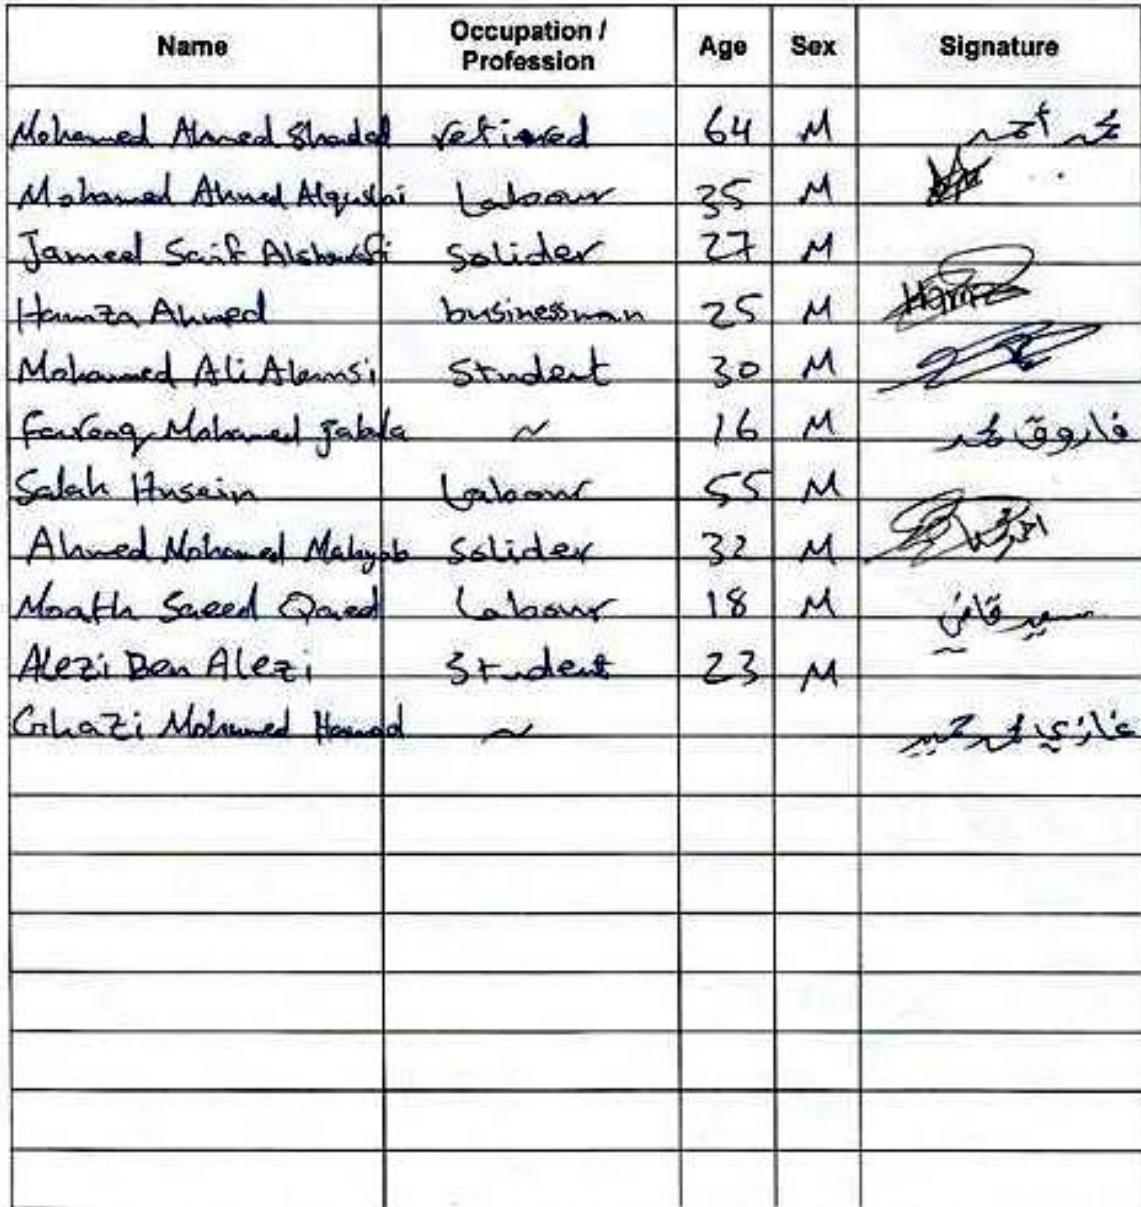 Name Occupation / Profession Age Sex Signature
Mohamed Ahmed Shadad retiored 64 M محمد أحمد
Mohamed Ahmed Labour 35 M
Jameel Saif Solider 27 M
Hamza Ahmed businessman 25 M Hamza
Mohamed Ali Student 30 M
Farooq Mohamed Jabala ~ 16 M فاروق محمد
Salah Husein Labour 55 M
Ahmed Mohamed Mahyob Solider 32 M
Moath Saeed Qaied Labour 18 M سعيد قائد
Alezi Ben Alezi Student 23 M
Ghazi Mohamed Hamod ~ غازي محمد حميد